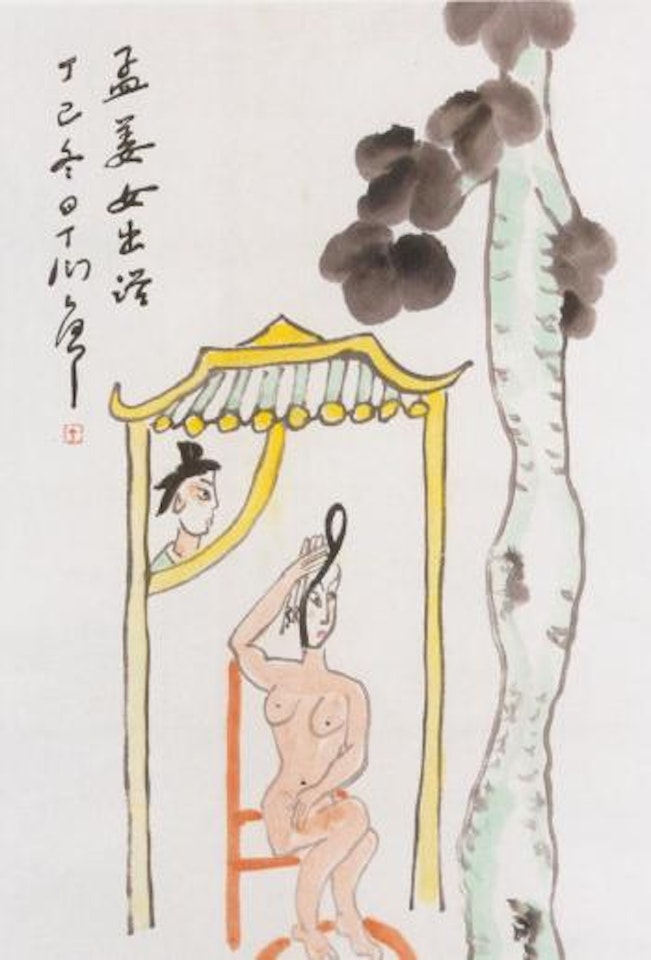 孟姜女出浴
丁巳冬日丁衍庸